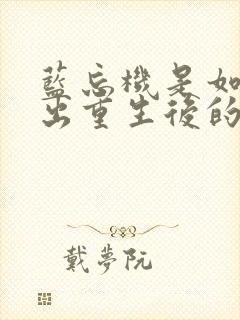 藍忘機是如
出重生後的
戴夢阮